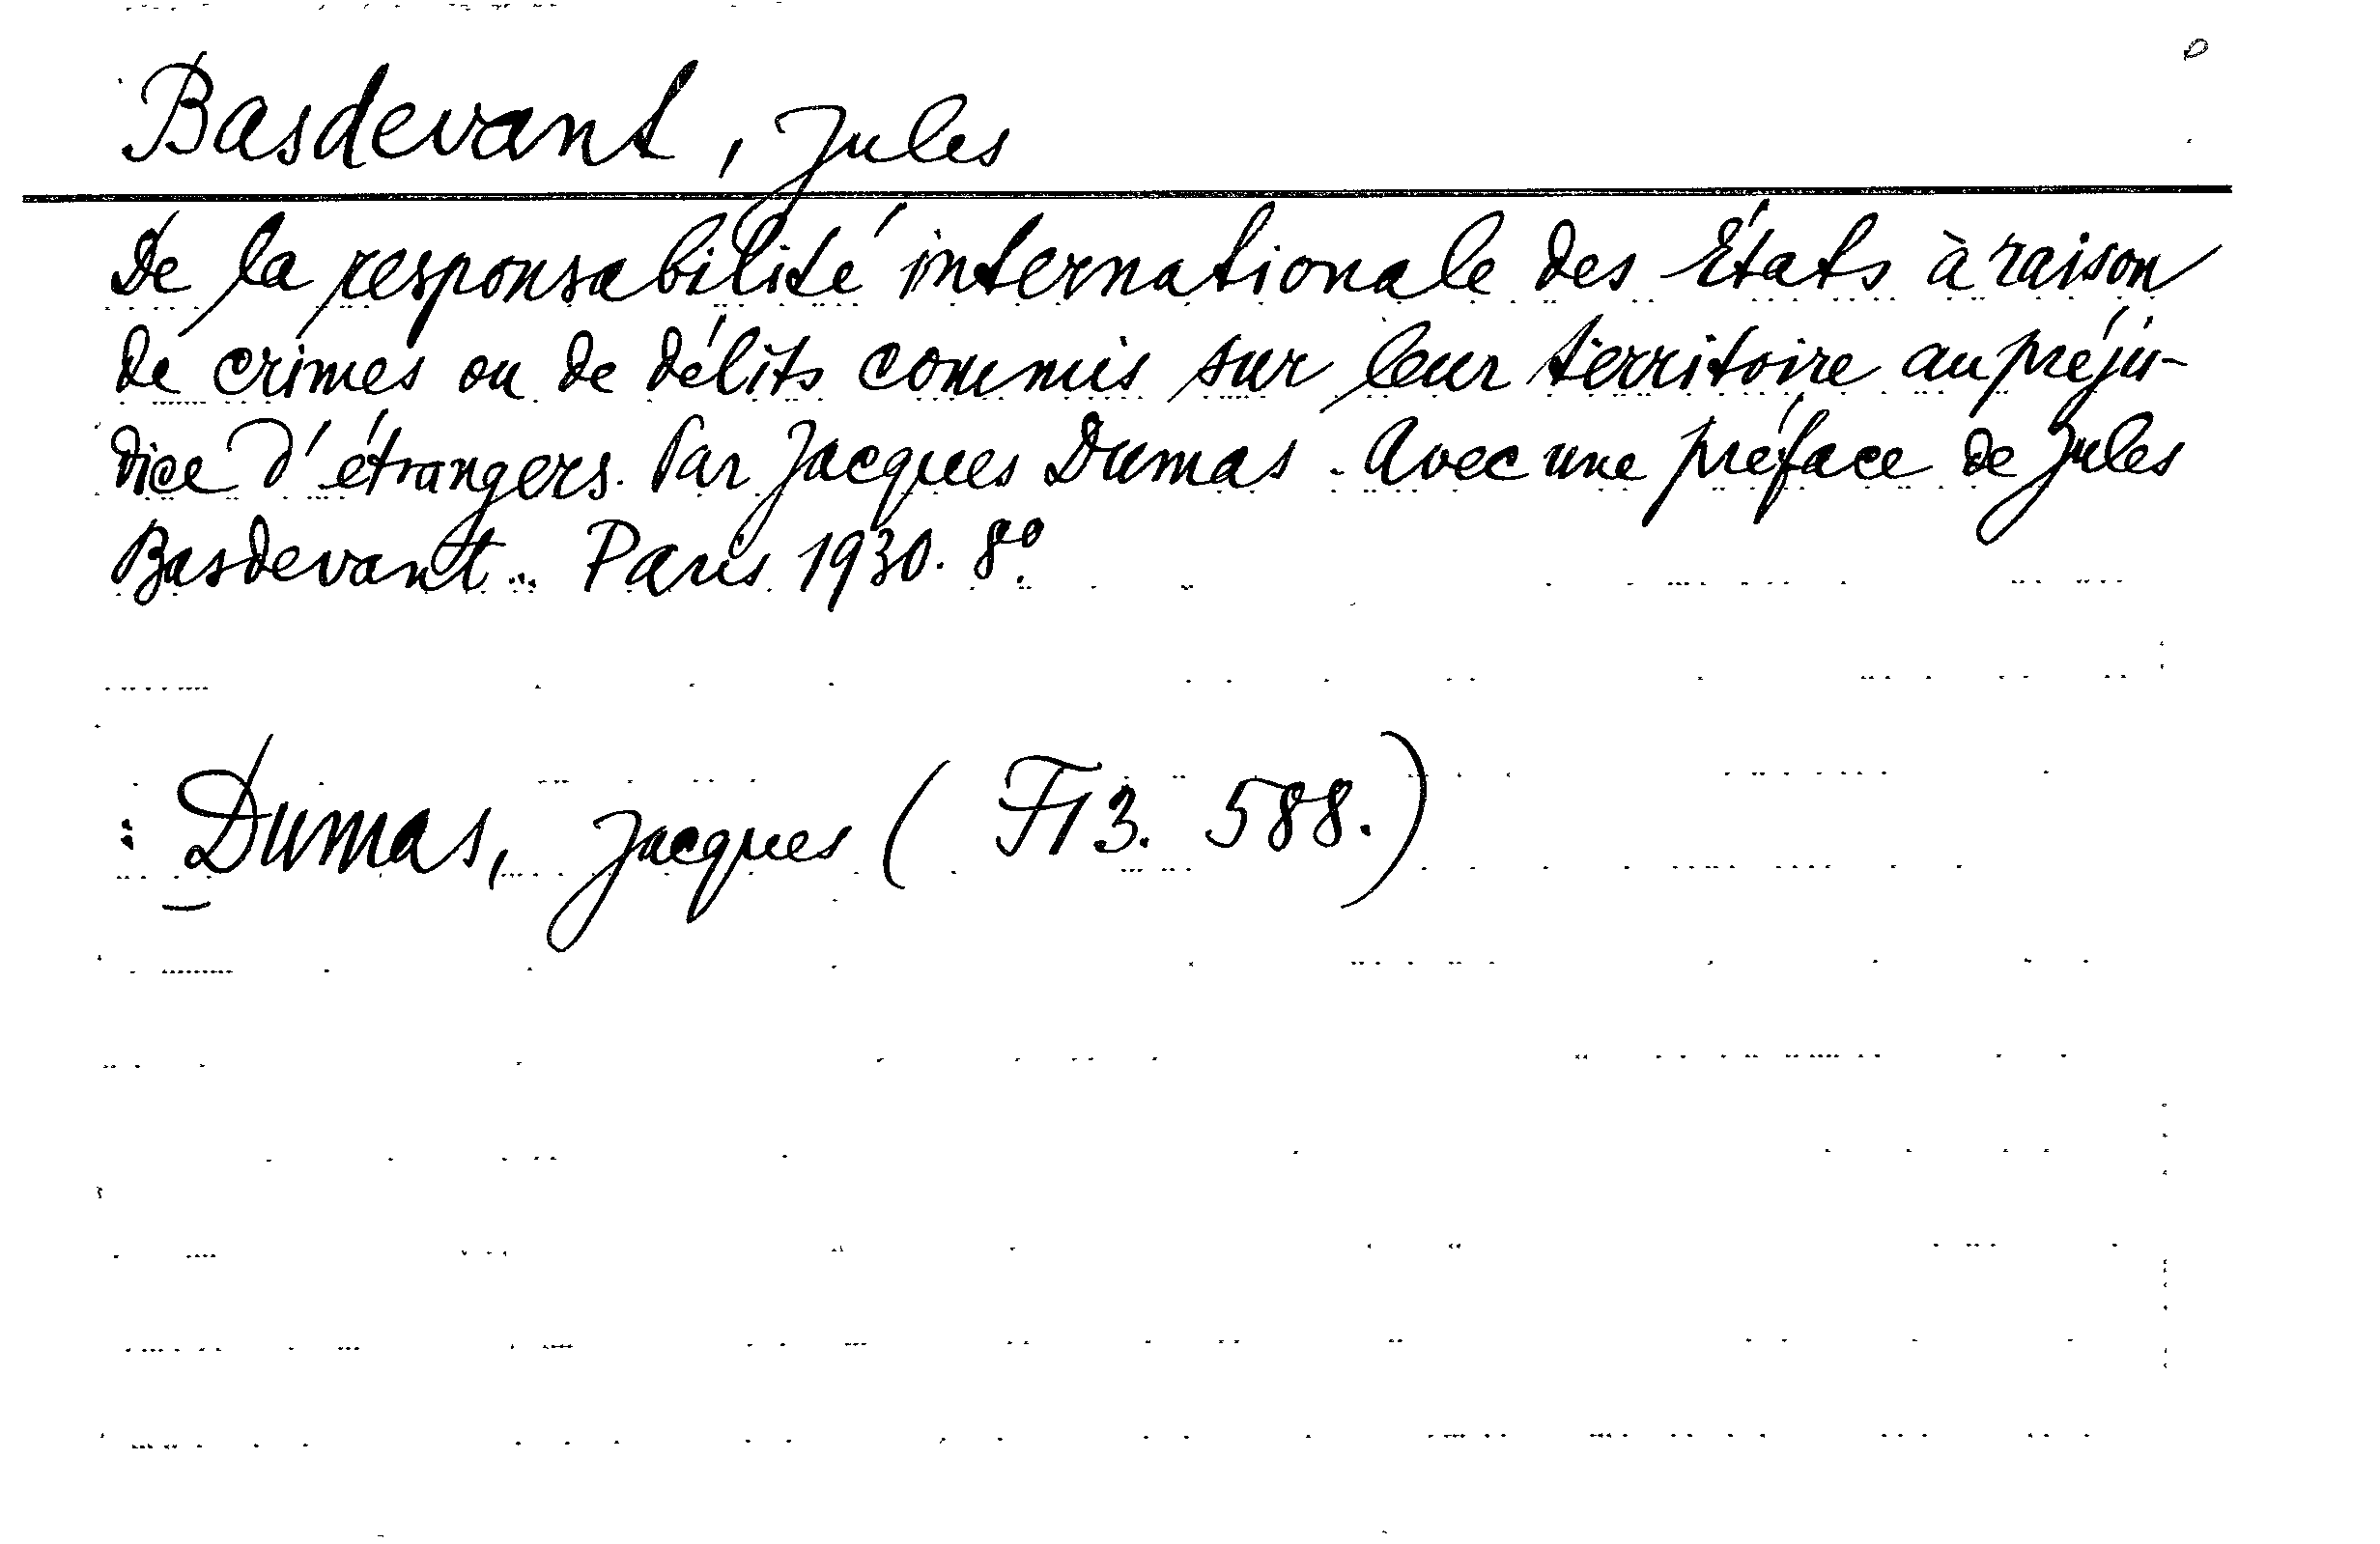 Basdevant, Jules
De la responsabilité internationale des États à raison
de crimes ou de délits commis sur leur territoire au préju-
dice d'étrangers. Par Jacques Dumas. Avec une préface de Jules
Basdevant... Paris 1930. 8º.
: Dumas, Jacques (F13. 588.)